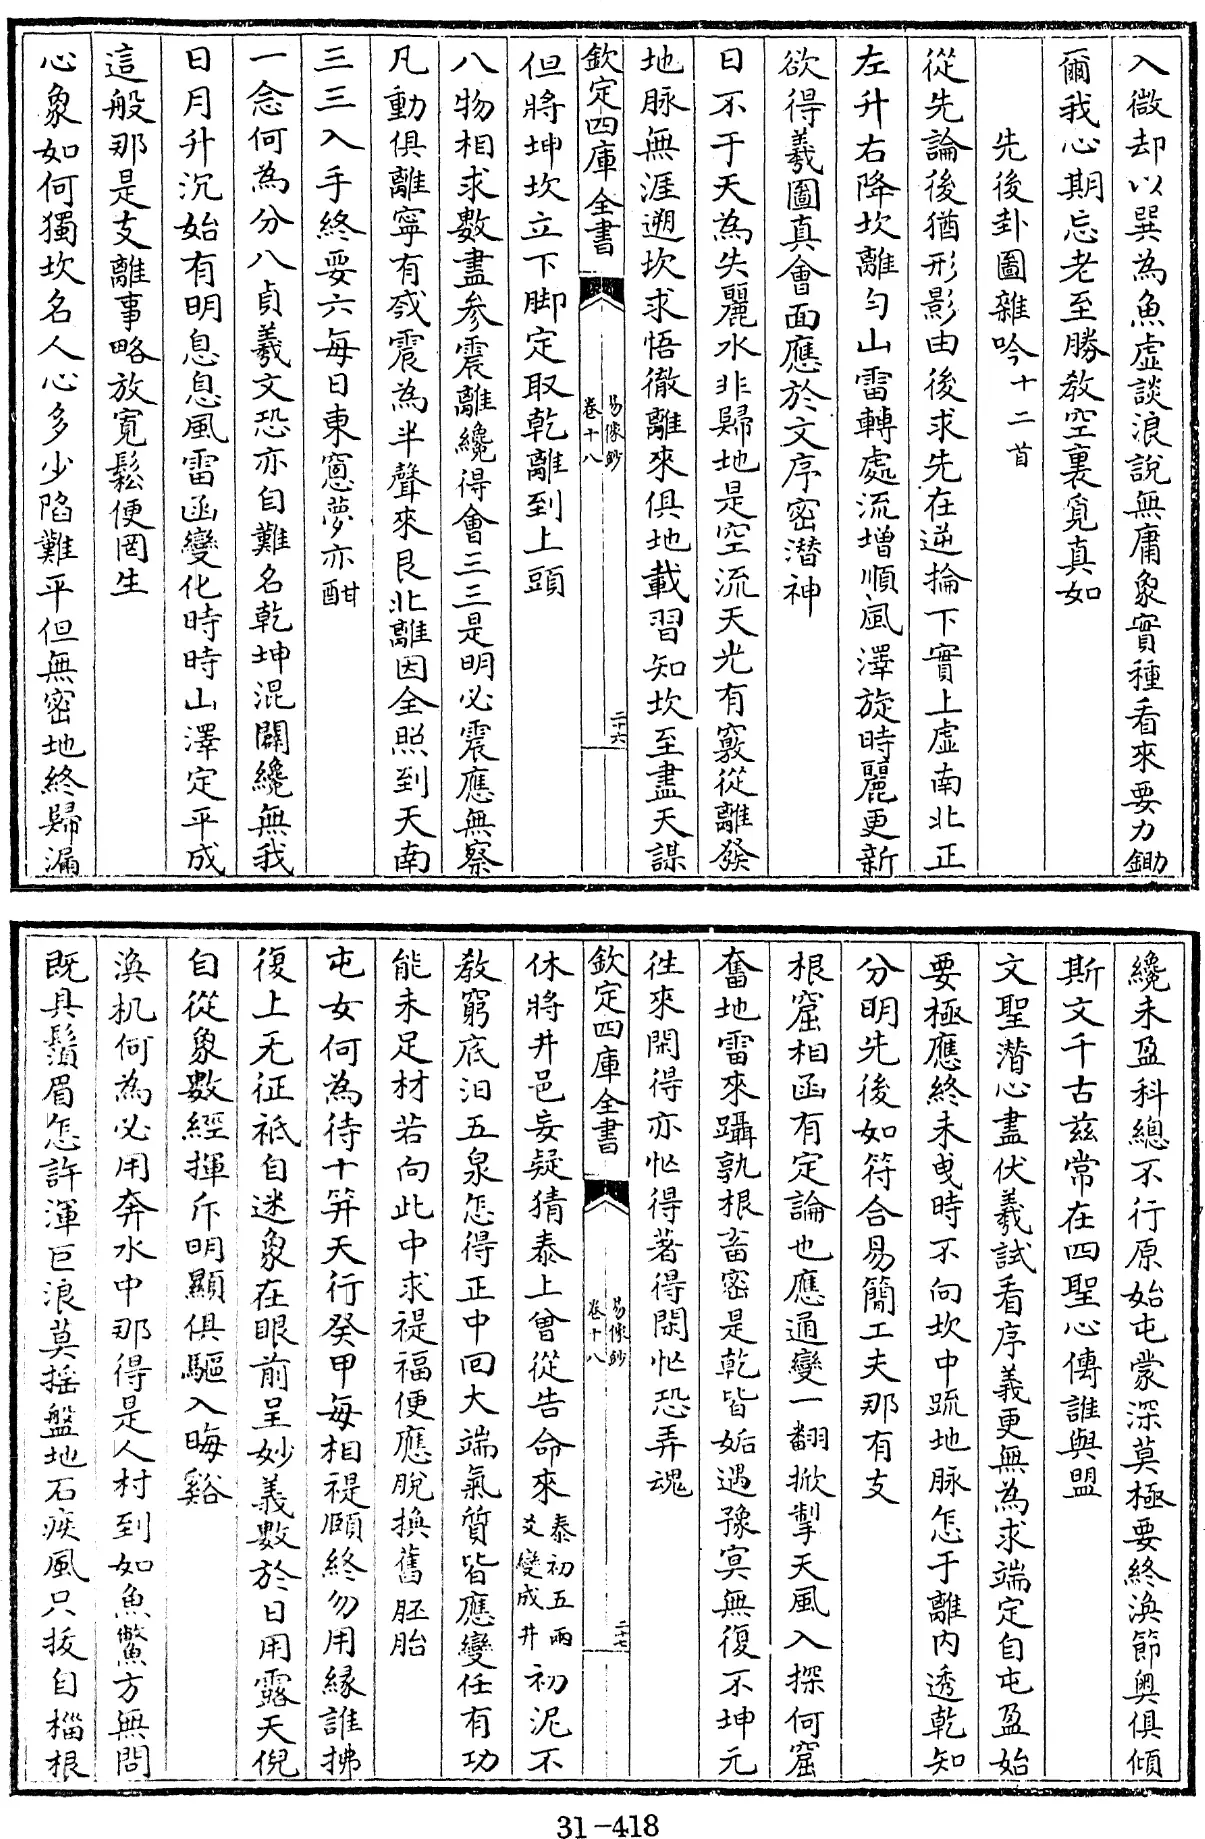 入微却以巽為魚虛談浪說無庸象實種看來要力鋤
爾我心期忘老至勝教空裏覓真如
先後卦圖雜吟十二首
從先論後猶形影由後求先在逆掄下實上虛南北正
左升右降坎離勻山雷轉處流增順風澤旋時麗更新
欲得羲圖真會面應於文序密潛神
日不于天為失麗水非歸地是空流天光有竅從離發
地脉無涯遡坎求悟徹離來俱地載習知坎至盡天謀
欽定四庫全書
易像鈔
卷十八
二十六
但將坤坎立下脚定取乾離到上頭
八物相求數盡參震離纔得會三三是明必震應無察
凡動俱離寧有㦯震為半聲來艮北離因全照到天南
三三入手終要六每日東窻夢亦酣
一念何為分八貞羲文恐亦自難名乾坤混闢纔無我
日月升沉始有明息息風雷函變化時時山澤定平成
這般那是支離事略放寛鬆便罔生
心象如何獨坎名人心多少陷難平但無密地終歸漏
纔未盈科總不行原始屯蒙深莫極要終渙節奧俱傾
斯文千古兹常在四聖心傳誰與盟
文聖潛心盡伏羲試看序義更無為求端定自屯盈始
要極應終未曳時不向坎中疏地脉怎于離内透乾知
分明先後如符合易簡工夫那有支
根窟相函有定論也應通變一翻掀掣天風入探何窟
奮地雷來躡孰根畜密是乾皆姤遇豫㝠無復不坤元
徃來閑得亦忙得著得閑忙恐弄魂
欽定四庫全書
易像鈔
卷十八
二十七
休將井邑妄疑猜泰上曾從告命來泰初五兩爻變成井初泥不
教窮底汩五泉怎得正中回大端氣質皆應變任有功
能未足材若向此中求禔福便應脫換舊胚胎
屯女何為待十筭天行癸甲每相禔頤終勿用緣誰拂
復上无征祇自迷象在眼前呈妙義數於日用露天倪
自從象數經揮斥明顯俱驅入晦谿
渙机何為必用奔水中那得是人村到如魚鱉方無問
既具鬚眉怎許渾巨浪莫搖盤地石疾風只拔自樒根
31-418